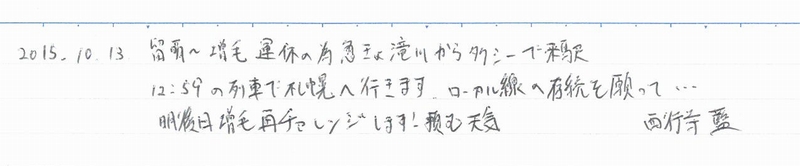 2015.10.13 留萌〜増毛 運休の為急きょ滝川からタクシーで来駅
12:59の列車で札幌へ行きます。ローカル線の存続を願って…
明後日増毛再チャレンジします!頼む天気 西行寺 藍